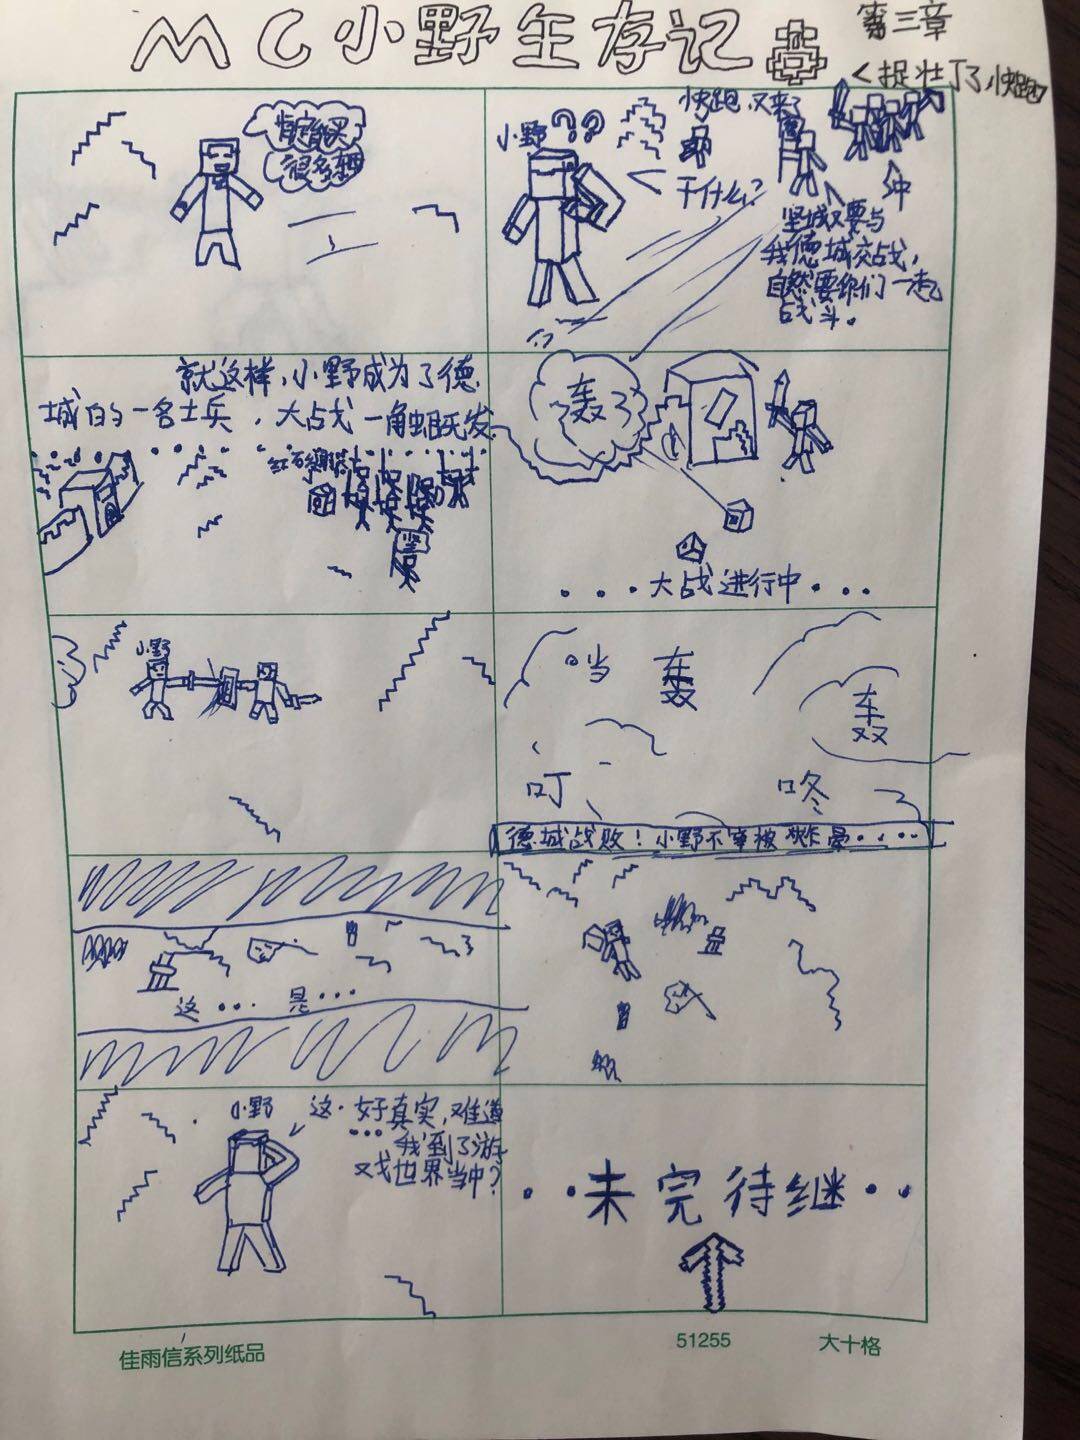 MC小野生存记
第三章
<捉壮丁了,快跑
肯定能买
很多东西
小野??
快跑,又来了
干什么?
冲
坚城又要与
我德城交战,
自然要你们一起
战斗。
就这样,小野成为了德
城的一名士兵,大战一触即发
轰
....大战进行中....
小野
当 轰
轰
叮 咚
德城战败!小野不幸被砍晕.....
这...是...
小野
这·好真实,难道
...我到了游
戏世界当中?
..未完待继..
佳雨信系列纸品
51255
大十格